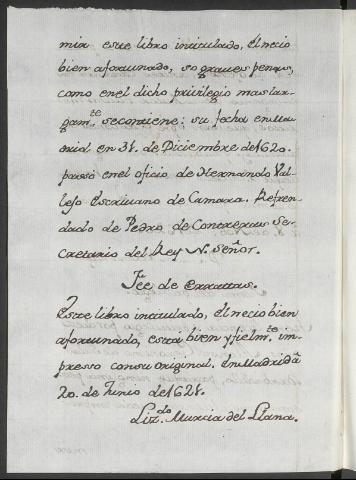 mir este libro intitulado, El necio
bien afortunado, so graues penas,
como en el dicho priuilegio mas lar-
gam.te se contiene: su fecha en Ma-
drid en 31. de Diciembre de 1620.
passò en el oficio de Hernando Val-
lejo Escriuano de Camara. Refren-
dado de Pedro de Contreras Se-
cretario del Rey N. Señor.
Fee de Erratas.
Este libro intitulado, El necio bien
afortunado, esta bien y fielm.te im-
presso con su original. En Madrid à
20. de Junio de 1621.
Liz.do Murcia del Llana.